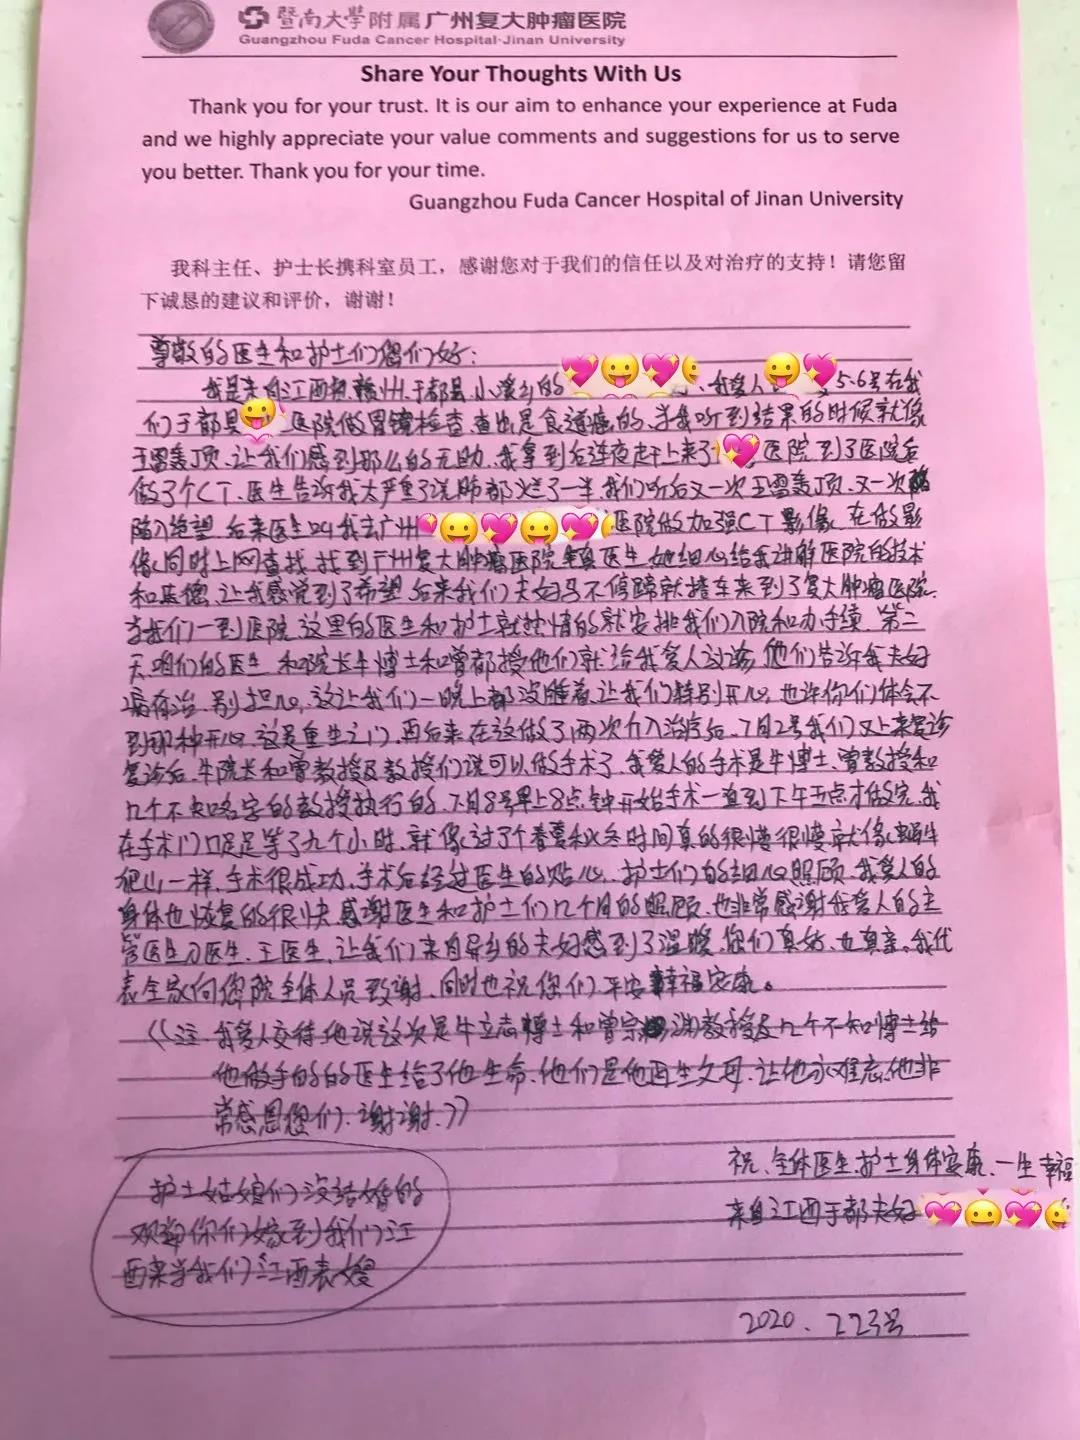 暨南大学附属广州复大肿瘤医院
Guangzhou Fuda Cancer Hospital·Jinan University
Share Your Thoughts With Us
Thank you for your trust. It is our aim to enhance your experience at Fuda
and we highly appreciate your value comments and suggestions for us to serve
you better. Thank you for your time.
Guangzhou Fuda Cancer Hospital of Jinan University
我科主任、护士长携科室员工，感谢您对于我们的信任以及对治疗的支持！请您留
下诚恳的建议和评价，谢谢！
尊敬的医生和护士们您们好：
我是来自江西 赣州、于都县、小溪乡的 、我爱人 5.6号在我
们于都县 医院做胃镜检查、查出是食道癌的、当我听到结果的时候就像
五雷轰顶、让我们感到那么的无助、我拿到后连夜赶上来了 医院、到了医院后
做了个CT、医生告诉我太严重了说肺都烂了一半、我们听后又一次五雷轰顶、又一次
陷入绝望、后来医生叫我去广州 医院做加强CT影像、在做影
像、同时上网查找、找到广州复大肿瘤医院 医生、她细心给我讲解医院的技术
和医德、让我感觉到了希望、后来我们夫妇马不停蹄就搭车来到了复大肿瘤医院、
当我们一到医院、这里的医生和护士就热情的就安排我们入院和办手续、第三
天咱们的医生、和院长牛博士和曾教授他们就给我爱人会诊、他们告诉我夫妇
病有治、别担心、这让我们一晚上都没睡着、让我们特别开心、也许你们体会不
到那种开心、这是重生之门、再后来在这做了两次介入治疗后、7月2号我们又上来复诊
复诊后、牛院长和曾教授及教授们说可以做手术了、我爱人的手术是牛博士、曾教授和
几个不知名字的教授执行的、7月8号早上8点钟开始手术一直到下午五点才做完、我
在手术门口足足等了九个小时、就像过了个春夏秋冬时间真的很慢很慢就像蜗牛
爬山一样、手术很成功、手术后经过医生的贴心、护士们的细心照顾、我爱人的
身体也恢复的很快、感谢医生和护士们几个月的照顾、也非常感谢我爱人的主
管医生刁医生、王医生、让我们来自异乡的夫妇感到了温暖、您们真好、也真亲、我代
表全家向您院全体人员致谢、同时也祝您们平安幸福安康。
《（注、我爱人交待他说这次是牛立志博士和曾宗渊教授及几个不知博士给
他做手的的医生给了他生命、他们是他再生父母、让他永难忘、他非
常感恩您们、谢谢、)》
祝、全体医生、护士身体安康、一生幸福
来自江西于都夫妇
护士姑娘们没结婚的
欢迎你们嫁到我们江
西来当我们江西表嫂
2020、7 23号